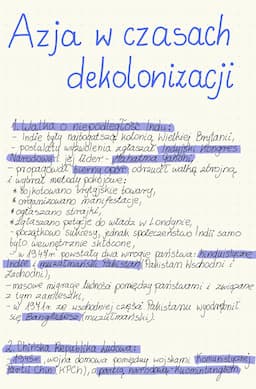 Azja w czasach
dekolonizacji
1. Walka o niepodległość Indii:
- Indie były najbogatszą kolonią Wielkiej Brytanii,
- postulaty wyzwolenia zgłaszał Indyjski Kongres
Narodowy i jej lider - Mahatma Gandhi,
- propagował bierny opór, odrzucił walkę zbrojną
i wybrał metody pokojowe:
* bojkotowano brytyjskie towary,
* organizowano manifestacje,
* ogłaszano strajki,
* zgłaszano petycje do władz w Londynie,
- początkowo sukcesy, jednak społeczeństwo Indii samo
było wewnętrznie skłócone,
- w 1947r. powstały dwa wrogie państwa: hinduistyczne
Indie i muzułmański Pakistan (Pakistan Wschodni i
Zachodni),
- masowe migracje ludności pomiędzy państwami i związane
z tym zamieszki,
- w 1971r. ze wschodniej części Pakistanu wyodrębnił
się Bangladesz (muzułmański).
2. Chińska Republika Ludowa:
- wojna domowa pomiędzy wojskami Komunistycznej
Partii Chin (KPCh), a partią narodową Kuomintangiem